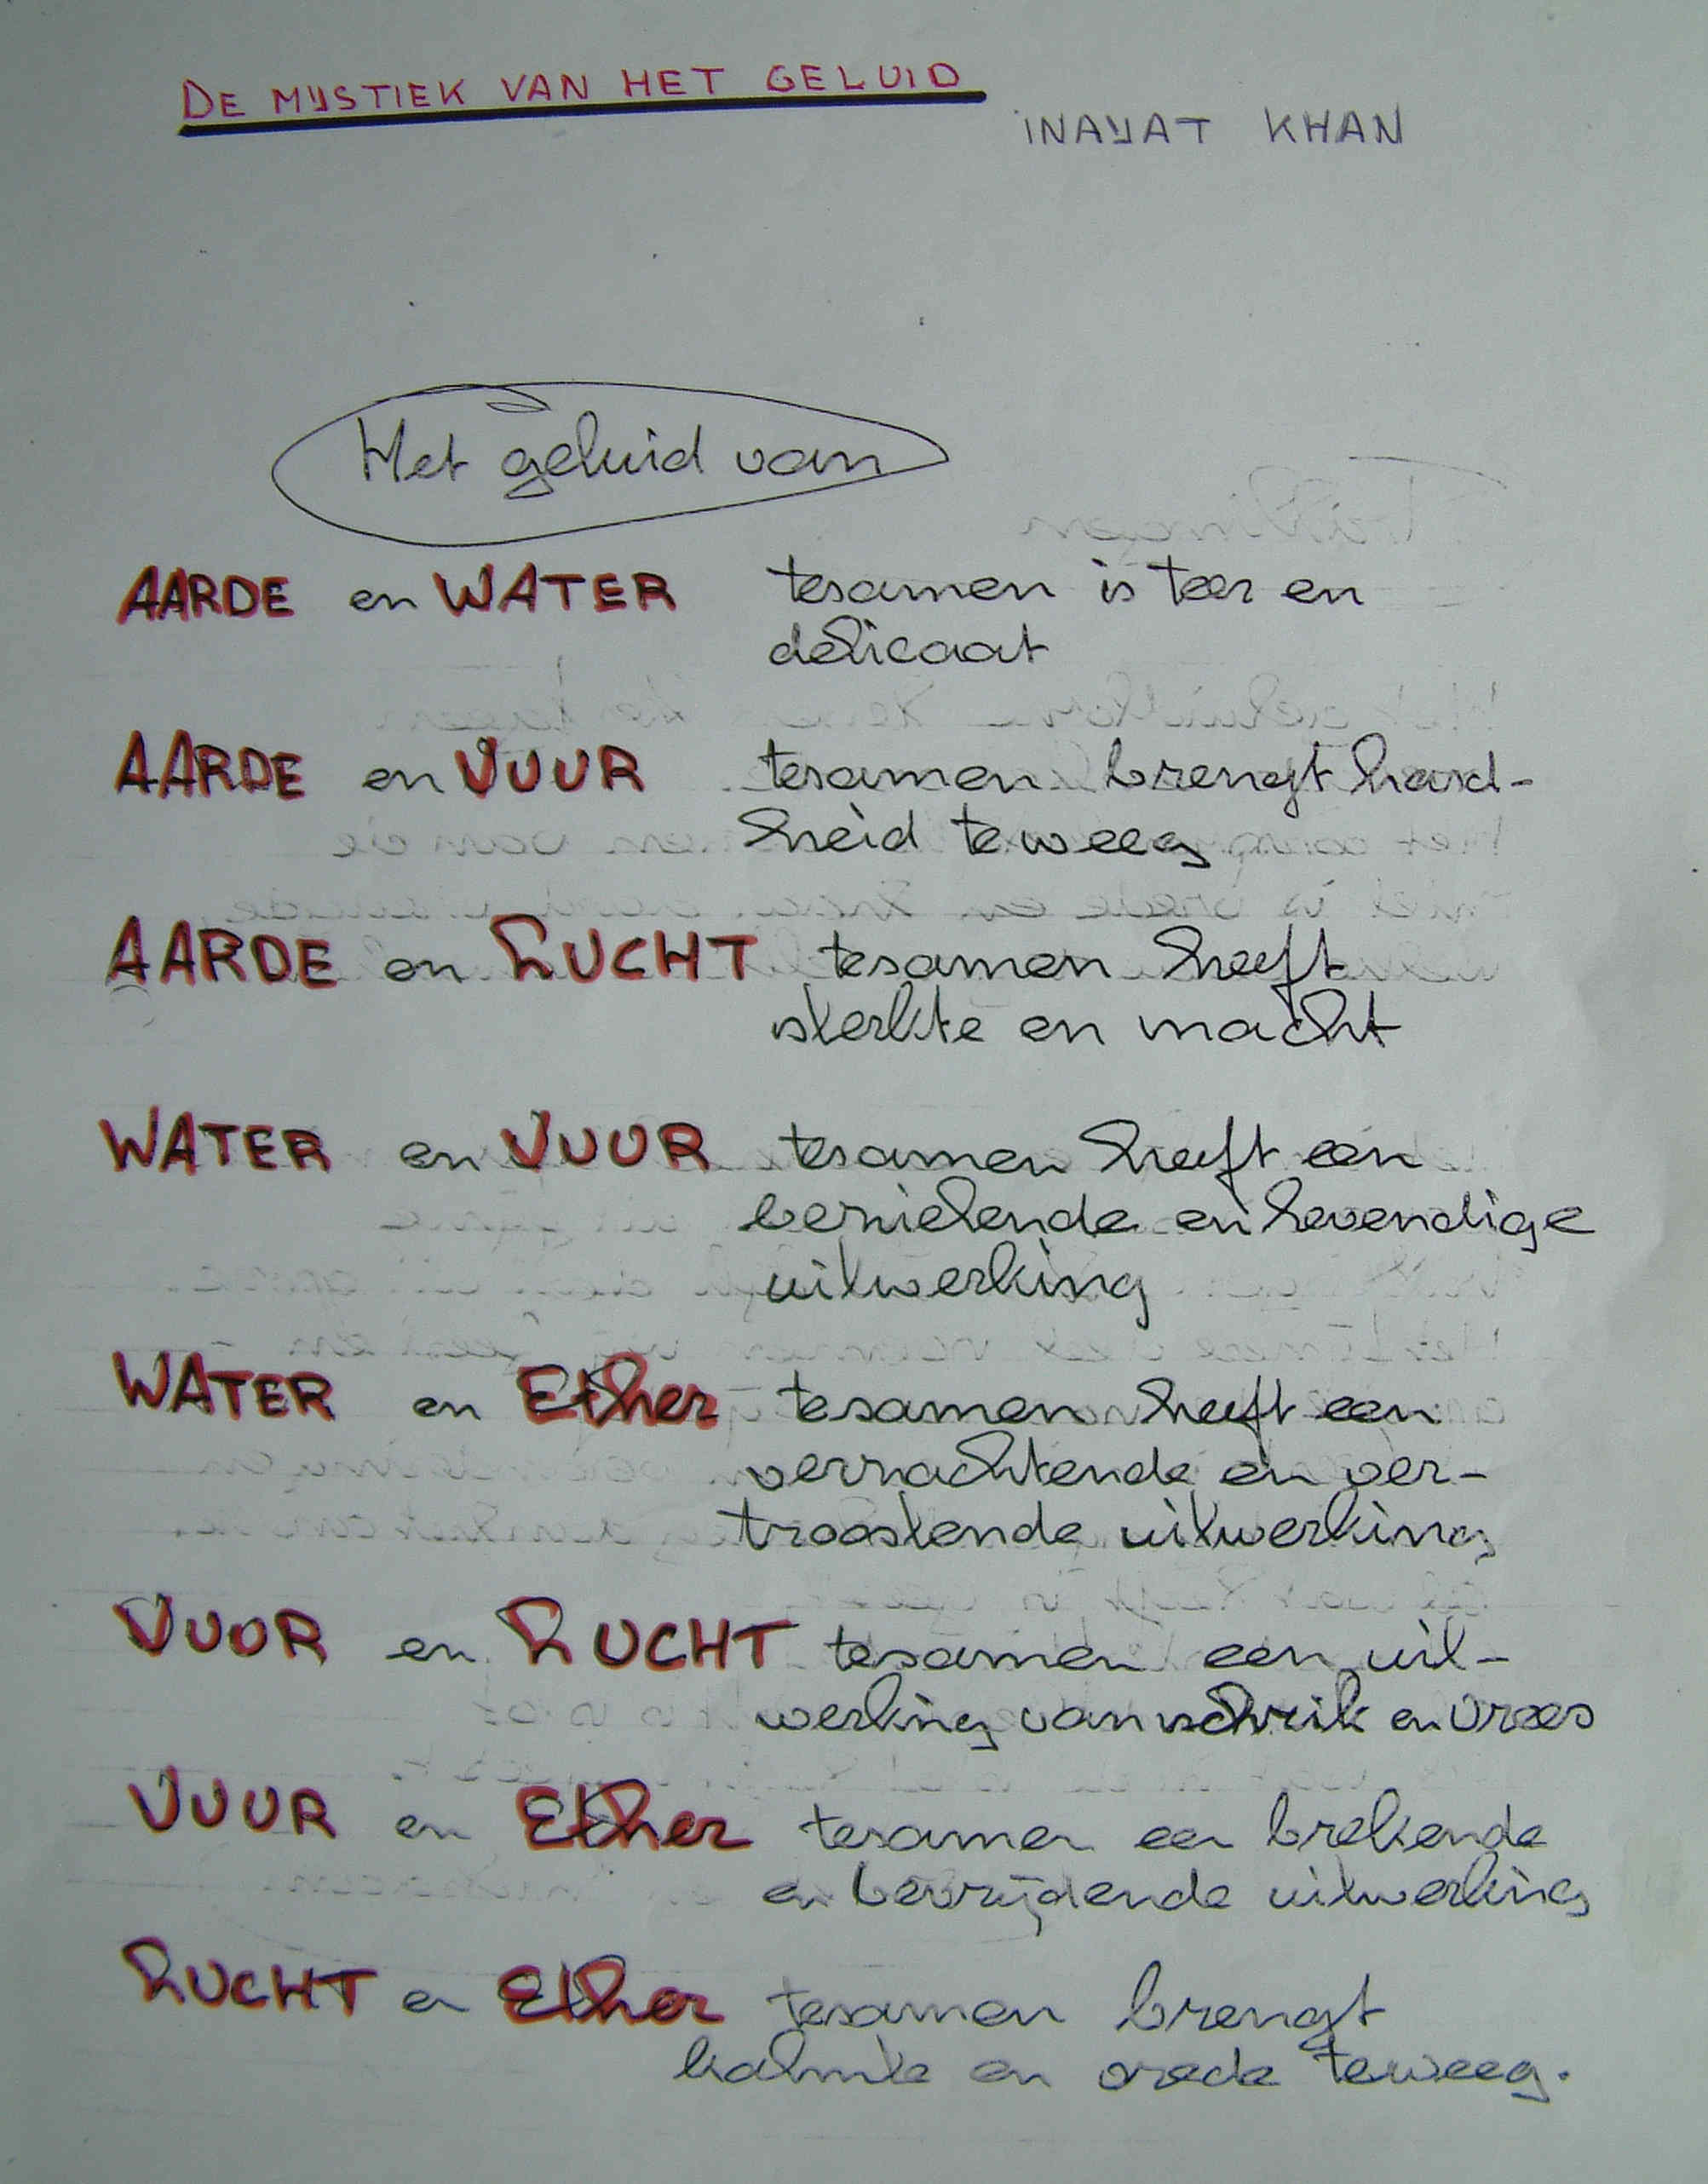 DE MYSTIEK VAN HET GELUID
INAYAT KHAN
Het geluid van
AARDE en WATER tesamen is teer en
delicaat
AARDE en VUUR tesamen brengt hard-
heid teweeg
AARDE en LUCHT tesamen heeft
sterkte en macht
WATER en VUUR tesamen heeft een
bezielende en levendige
uitwerking
WATER en Ether tesamen heeft een
verzachtende en ver-
troostende uitwerking
VUUR en LUCHT tesamen een uit-
werking van schrik en vrees
VUUR en Ether tesamen een brekende
en bevrijdende uitwerking
LUCHT en Ether tesamen brengt
kalmte en vrede teweeg.